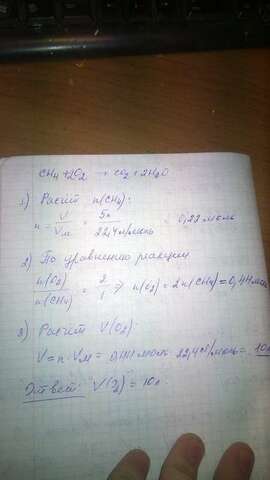 CH4 + 2O2 → CO2 + 2H2O
1) Расчёт n(CH4):
n = V/Vм = 5л/22,4л/моль = 0,22 моль
2) По уравнению реакции
n(O2)/n(CH4) = 2/1 ⇒ n(O2) = 2n(CH4) = 0,44 моль
3) Расчёт V(O2):
V = n · Vм = 0,44 моль · 22,4 л/моль = 10л
Ответ: V(2) = 10л.